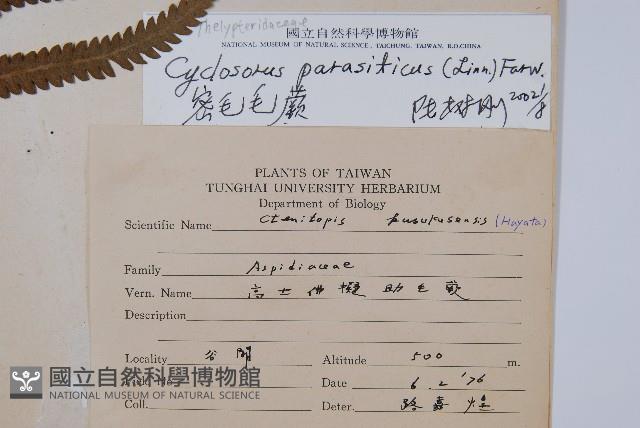 Thelypteridaceae
國立自然科學博物館
NATIONAL MUSEUM OF NATURAL SCIENCE, TAICHUNG, TAIWAN, R.O.CHINA
Cyclosorus parasiticus (Linn.) Farw.
密毛毛蕨 2002 1/8
PLANTS OF TAIWAN
TUNGHAI UNIVERSITY HERBARIUM
Department of Biology
Scientific Name Ctenitopis kusukusensis (Hayata)
Family Aspidiaceae
Vern. Name 高士佛擬肋毛蕨
Description
Locality 谷關 Altitude 500 m.
Date 6. 2 '76
Coll. Deter.
國立自然科學博物館
NATIONAL MUSEUM OF NATURAL SCIENCE